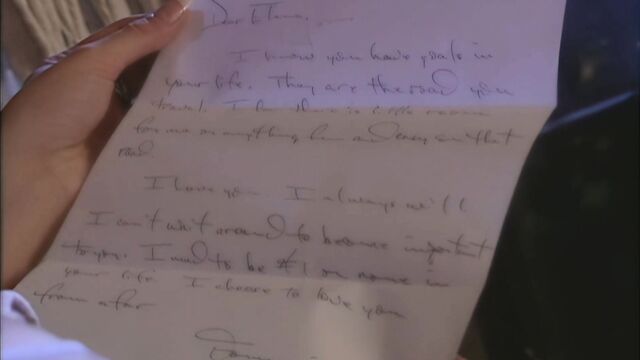 Dear
I know you have goals in
your life. They are the road you
travel. I there is little room
for me or anything on that
road.
I love you. I always will
I can't wait around to become important
to you. I need to be #1 or none in
your life. I choose to love you
from afar